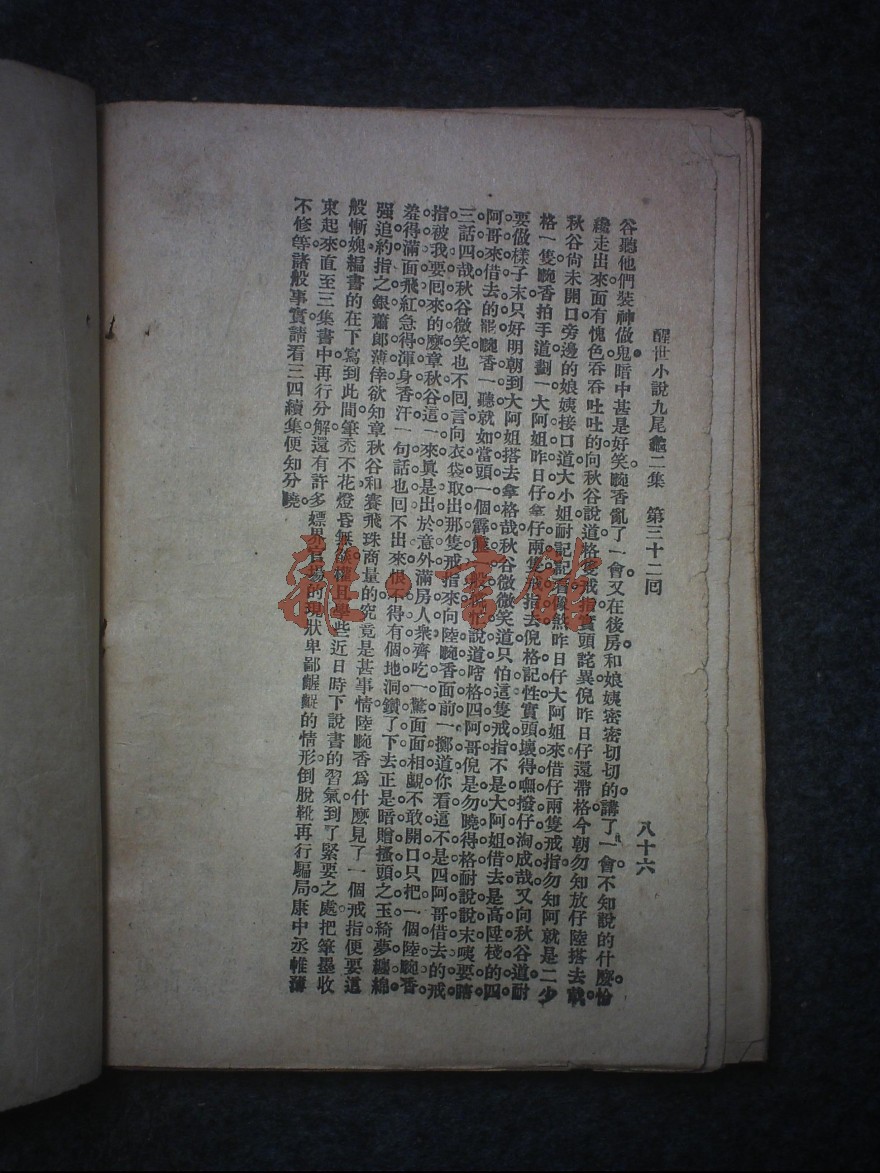 醒世小說九尾龜二集　第三十二回　八十六
谷聽他們裝神做鬼暗中甚是好笑畹香亂了一會又在後房和娘姨密密切切的講了一會不知說的什麼。恰
纔走出來面有愧色吞吞吐吐的向秋谷說道格隻戒指實頭詫異倪昨日仔還帶格今朝勿知放仔陸搭去哉。
秋谷尚未開口旁邊的娘姨接口道大小姐耐記記看像煞昨日仔大阿姐來借仔兩隻戒指勿知阿就是二少
格一隻畹香拍手道劃一大阿姐昨日仔拿仔兩隻戒指去倪格記性實頭壞得嘸撥仔淘成哉又向秋谷道耐
要做樣子末只好明朝到大阿姐搭去拿格哉秋谷微微笑道只怕這隻戒指不是大阿姐借去是高陞棧的四
阿哥來借去的罷畹香一聽就如當頭一個霹靂一般慌忙說道啥格四阿哥倪是勿曉得格耐說說末咦要瞎
三話四哉秋谷微笑也不回言向衣袋取出那隻戒指來向陸畹香面前一擲道你看這不是四阿哥借去的戒
指被我要回來的麼章秋谷這一來眞是出於意外滿房人衆齊吃一驚面面相覷不敢開口只把一個陸畹香
羞得滿面飛紅急得渾身香汗一句話也回不出來恨不得有個地洞鑽了下去正是暗贈搔頭之玉綺夢纏綿
强追約指之銀蕭郎薄倖欲知章秋谷和賽飛珠商量的究竟是甚事情陸畹香爲什麼見了一個戒指便要這
般慚媿編書的在下寫到此間筆禿不花燈昏無燄權且學些近日時下說書的習氣到了緊要之處把筆墨收
束起來直至三集書中再行分解還有許多嫖界官場的現狀卑鄙齷齪的情形倒脫靴再行騙局康中丞帷薄
不修等諸般事實請看三四續集便知分曉。
雜·書館